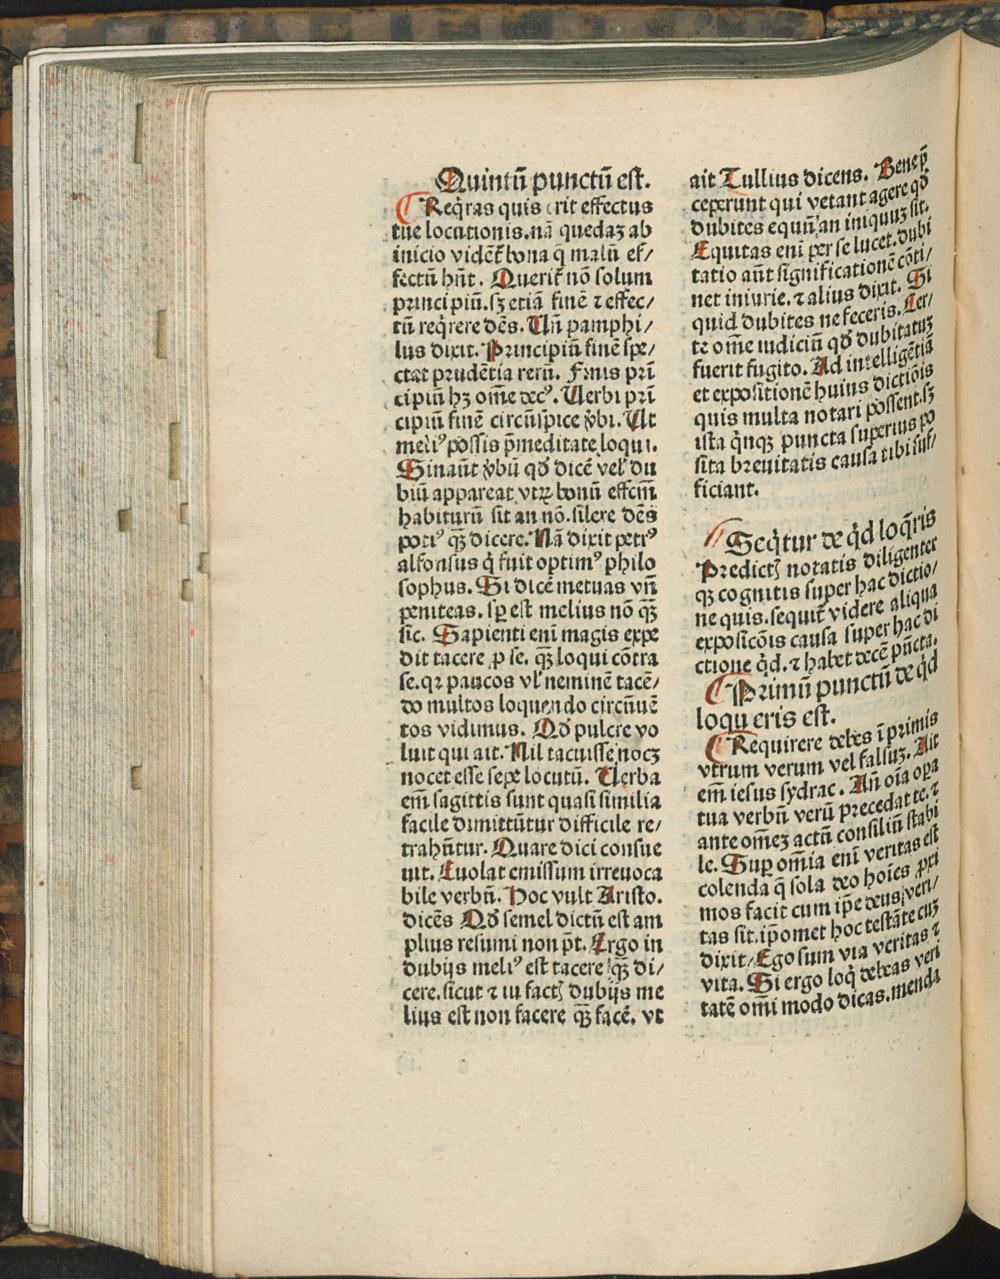 Quintū punctū est.
Req̄ras quis erit effectus
tue locutionis. nā quedaz ab
inicio vidēt̄ bona q̄ malū ef/
fectū hn̄t. Querit̄ nō solum
principiū. sꝫ etiā finē ⁊ effec/
tū req̄rere dēs. Un̄ pamphi/
lus dixit. Principiū finē spe/
ctat prudētia rerū. Finis pri
cipiū hꝫ om̄e decꝰ. Verbi pri
cipiū finē circūspice v̄bi. Ut
meliꝰ possis p̄meditate loqui.
Sinaūt v̄bū qđ dicē vel̕ du
biū appareat vtꝝ bonū effcm̄
habiturū sit an nō. silere dēs
potiꝰ qꝫ̄ dicere. Nā dixit petrꝰ
alfonsus q̄ fuit optimꝰ philo
sophus. Si dicē metuas vn̄
peniteas. sꝑ est melius nō qꝫ̄
sic. Sapienti eni magis expe
dit tacere ꝑ se. qꝫ̄ loqui cōtra
se. qꝛ paucos vl̕ neminē tacē/
do multos loquendo circūuē
tos vidimus. Qđ pulcre vo
luit qui ait. Nil tacuisse nocꝫ
nocet esse sepe locutū. Verba
em̄ sagittis sunt quasi similia
facile dimittūtur difficile re/
trahūtur. Quare dici consue
uit. Euolat emissum irreuoca
bile verbū. Hoc vult Aristo.
dicēs Qđ semel dictū est am
plius resumi non p̄t. Ergo in
dubijs meliꝰ est tacere qꝫ̄ di/
cere. sicut ⁊ in fact̕ dubijs me
lius est non facere qꝫ̄ facē. vt
ait Tullius dicens. Bene p̄
ceperunt qui vetant agere qđ
dubites equū an iniquuꝫ sit.
Equitas eni per se lucet. dubi
tatio aūt significationē cōti/
net iniurie. ⁊ alius dixit. Si
quid dubites ne feceris. Cer/
te om̄e iudiciū qđ dubitatuꝫ
fuerit fugito. Ad intelligētiā
et expositionē huius dictiōis
quis multa notari possent. sꝫ
ista q̄nqꝫ puncta superius po
sita breuitatis causa tibi suf/
ficiant.
Seq̄tur de q̄d loq̄ris
Predict̕ notatis diligenter
qꝫ cognitis super hac dictio/
ne quis. sequit̄ videre aliqua
expositōis causa super hac di
ctione q̄d. ⁊ habet decē pūcta.
Primū punctū de q̄d
loqueris est.
Requirere debes ī primis
vtrum verum vel falsuꝫ. Ait
em̄ iesus sydrac. An̄ oīa oꝑa
tua verbū verū precedat te. ⁊
ante om̄eꝫ actū consiliū stabi
le. Suꝑ om̄ia eni veritas est
colenda q̄ sola deo hoīes ꝓxi
mos facit cum ip̄e deus veri/
tas sit. ip̄omet hoc testāte cuꝫ
dixit. Ego sum via veritas ⁊
vita. Si ergo loq̄ debeas veri
tatē omi modo dicas. menda